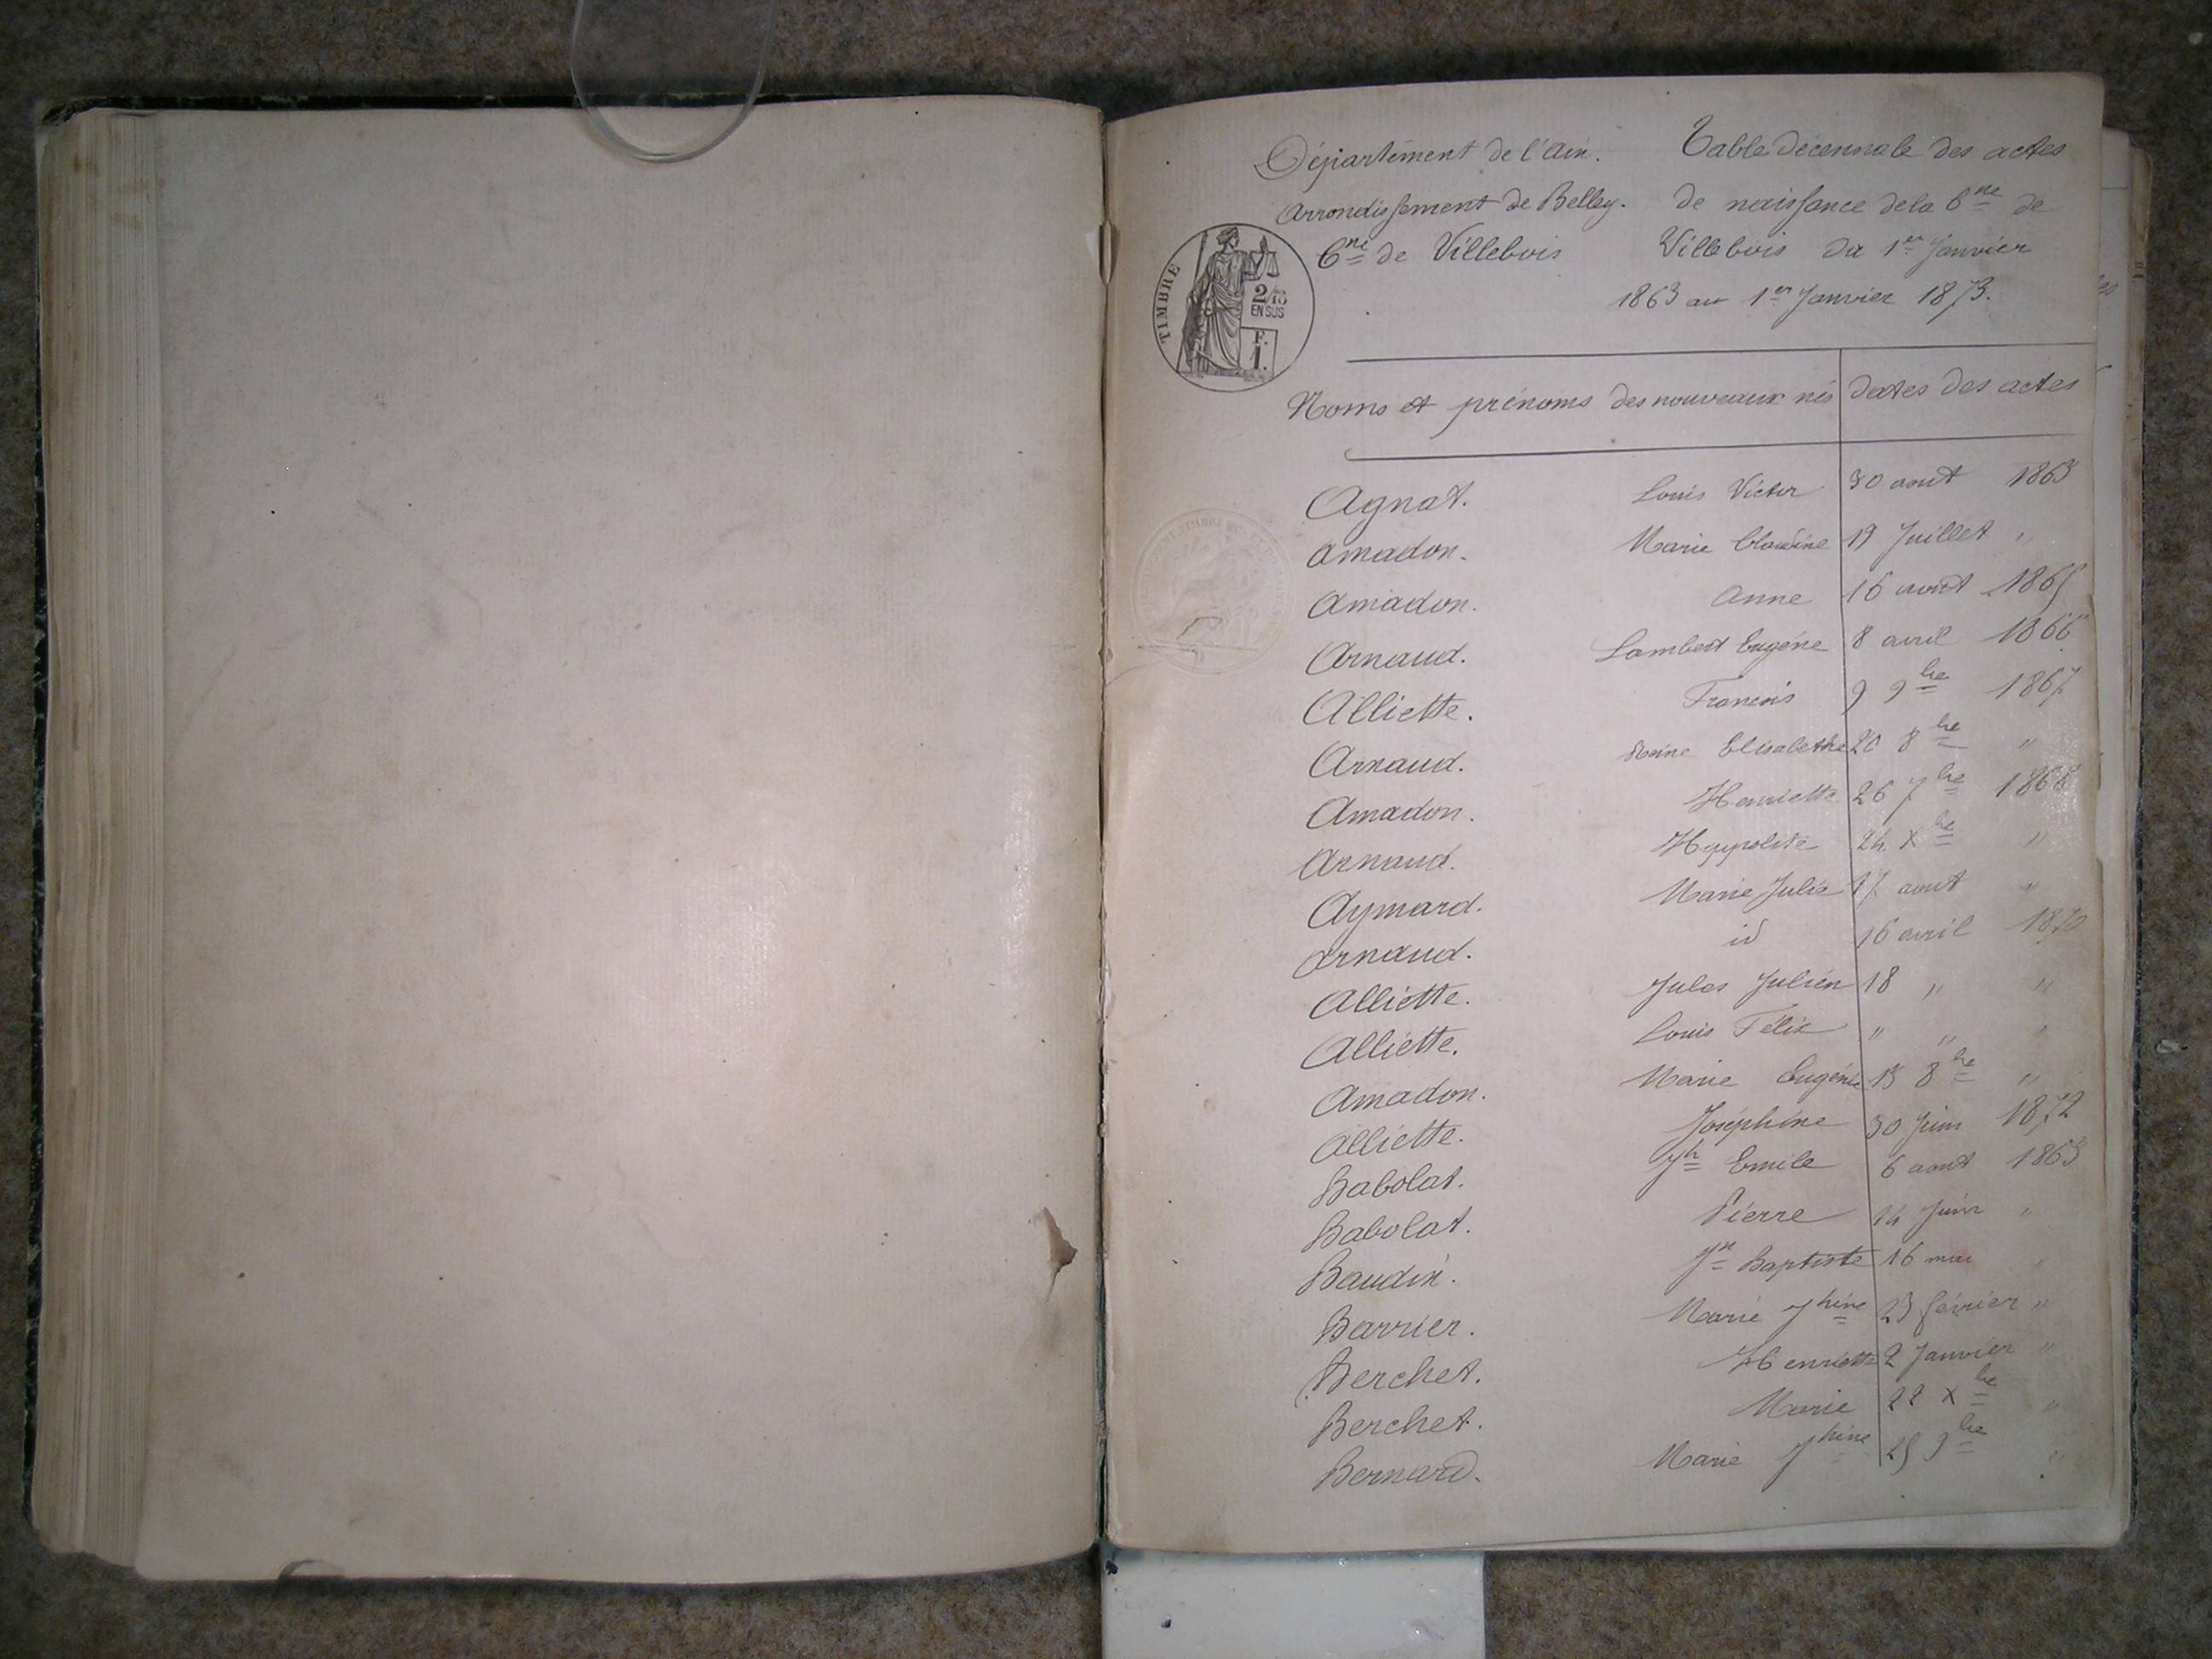 Département de l'Ain.
Arrondissement de Belley.
Cne de Villebois
Table décennale des actes
de naissance de la Cne de
Villebois du 1er Janvier
1863 au 1er Janvier 1873.
TIMBRE
2/10
EN SUS
F.
1.
Noms et prénoms des nouveaux nés dates des actes
Agnat. Louis Victor 30 aout 1863
Amadon. Marie Claudine 19 Juillet "
Amadon. Anne 16 août 1865
Arnaud. Lambert Eugène 8 avril 1866
Alliette. Francois 9 9bre 1867
Arnaud. Elisabethe 20 8bre "
Amadon. Henriette 26 7bre 1868
Arnaud. Hyppolite 24 Xbre "
Aymard. Marie Julie 17 aout "
Arnaud. id 16 avril 1870
Alliette. Jules Julien 18 " "
Alliette. Louis Félix " " "
Amadon. Marie Eugénie 13 8bre "
Alliette. Joséphine 30 Juin 1872
Babolat. Jh Emile 6 aout 1863
Babolat. Pierre 14 Juin "
Baudin. Jn Baptiste 16 mai "
Barrier. Marie Jhine 23 février "
Berchet. Henriette 2 Janvier "
Berchet. Marie 22 Xbre "
Bernard. Marie Jhine 25 9bre "